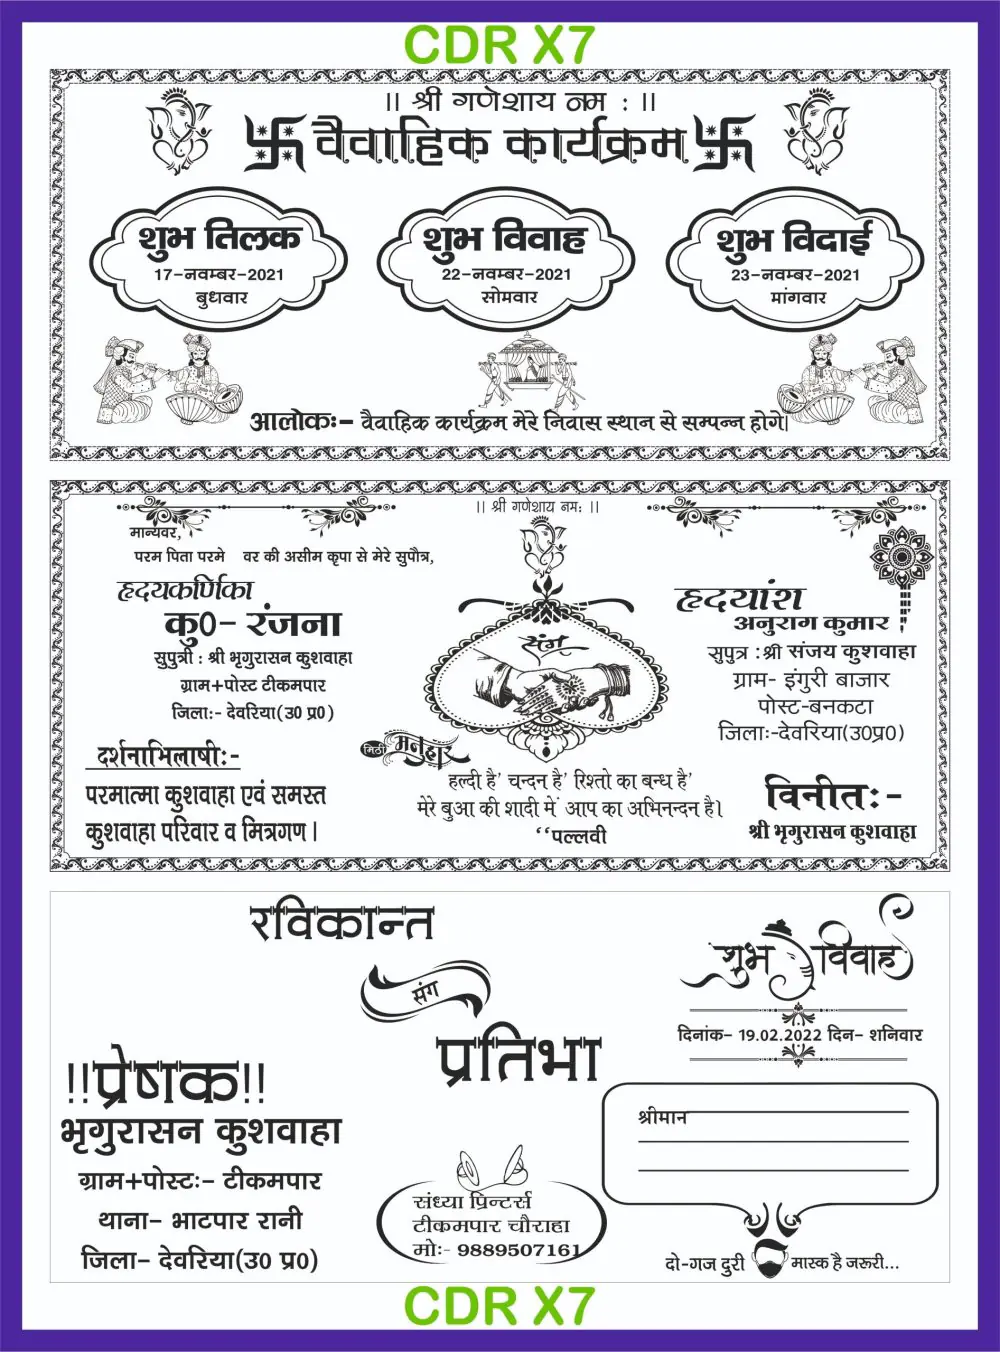 CDR X7
।। श्री गणेशाय नम : ।।
वैवाहिक कार्यक्रम
शुभ तिलक
17-नवम्बर-2021
बुधवार
शुभ विवाह
22-नवम्बर-2021
सोमवार
शुभ विदाई
23-नवम्बर-2021
मांगवार
आलोकः- वैवाहिक कार्यक्रम मेरे निवास स्थान से सम्पन्न होगे|
।। श्री गणेशाय नमः ।।
मान्यवर,
परम पिता परमे वर की असीम कृपा से मेरे सुपौत्र,
हृदयकर्णिका
कु0- रंजना
सुपुत्री : श्री भृगुरासन कुशवाहा
ग्राम+पोस्ट टीकमपार
जिलाः- देवरिया(उ0 प्र0)
दर्शनाभिलाषीः-
परमात्मा कुशवाहा एवं समस्त
कुशवाहा परिवार व मित्रगण।
संग
हृदयांश
अनुराग कुमार
सुपुत्र : श्री संजय कुशवाहा
ग्राम- इंगुरी बाजार
पोस्ट-बनकटा
जिलाः-देवरिया(उ0प्र0)
मिठी मनुहार
हल्दी है' चन्दन है' रिश्तो का बन्ध है'
मेरे बुआ की शादी में आप का अभिनन्दन है।
‘‘पल्लवी
विनीतः-
श्री भृगुरासन कुशवाहा
रविकान्त
संग
प्रतिभा
शुभ विवाह
दिनांक- 19.02.2022 दिन- शनिवार
!!प्रेषक!!
भृगुरासन कुशवाहा
ग्राम+पोस्टः- टीकमपार
थाना- भाटपार रानी
जिला- देवरिया(उ0 प्र0)
संध्या प्रिन्टर्स
टीकमपार चौराहा
मोः- 9889507161
श्रीमान
दो-गज दुरी मास्क है जरूरी...
CDR X7